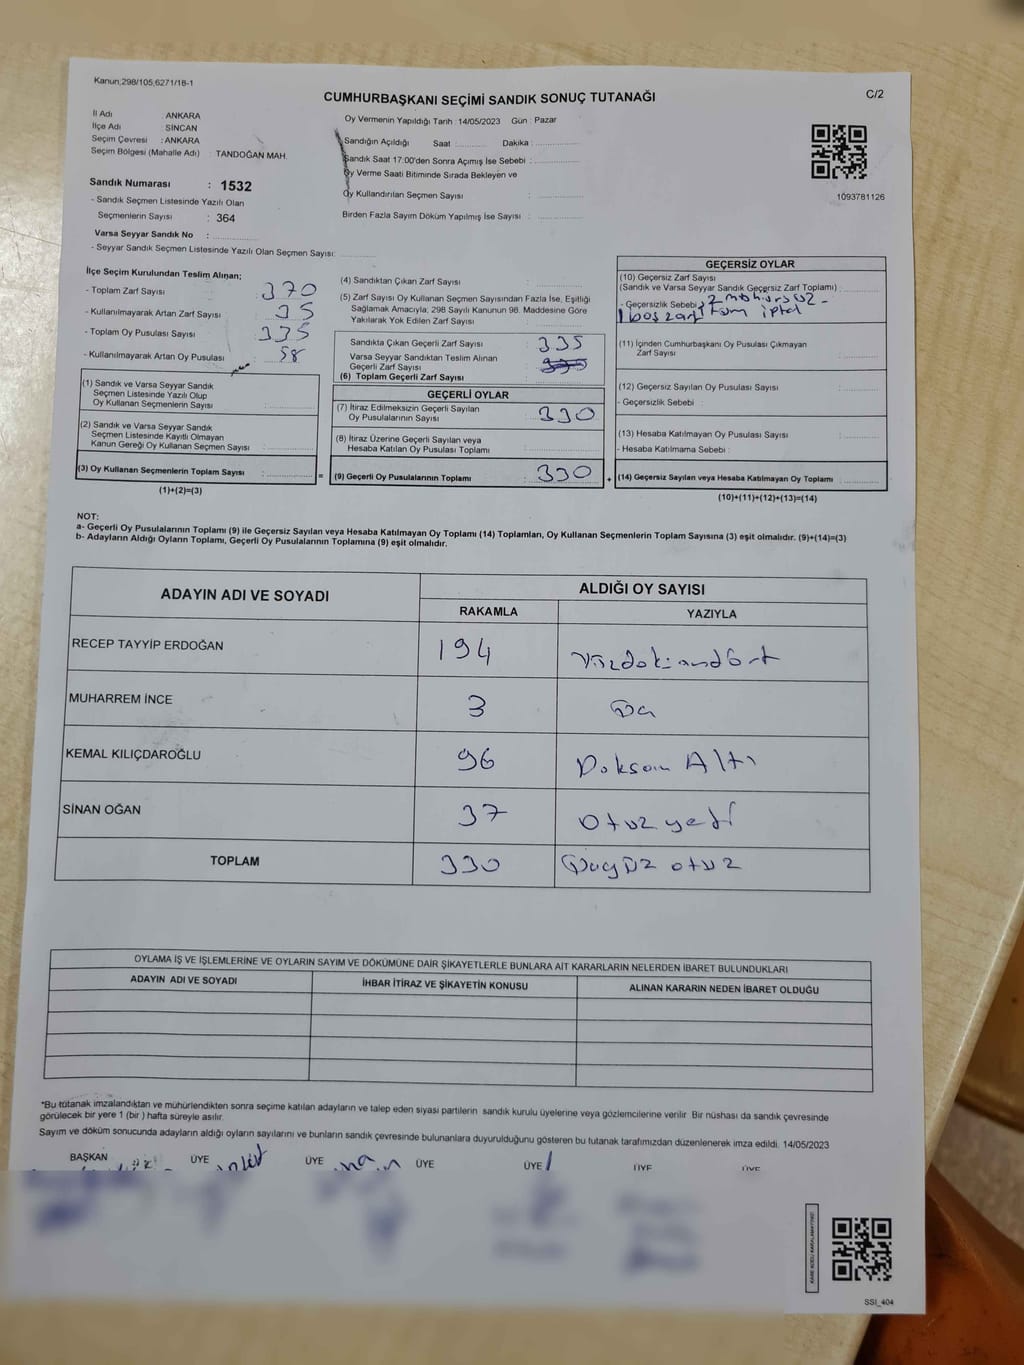 Kanun;298/105,6271/18-1
CUMHURBAŞKANI SEÇİMİ SANDIK SONUÇ TUTANAĞI
C/2
İl Adı : ANKARA
İlçe Adı : SİNCAN
Seçim Çevresi : ANKARA
Seçim Bölgesi (Mahalle Adı) : TANDOĞAN MAH.
Sandık Numarası : 1532
- Sandık Seçmen Listesinde Yazılı Olan
Seçmenlerin Sayısı : 364
Varsa Seyyar Sandık No :
- Seyyar Sandık Seçmen Listesinde Yazılı Olan Seçmen Sayısı:
Oy Vermenin Yapıldığı Tarih : 14/05/2023 Gün : Pazar
Sandığın Açıldığı Saat : Dakika :
Sandık Saat 17:00'den Sonra Açımış İse Sebebi :
Oy Verme Saati Bitiminde Sırada Bekleyen ve
Oy Kullandırılan Seçmen Sayısı :
Birden Fazla Sayım Döküm Yapılmış İse Sayısı :
1093781126
İlçe Seçim Kurulundan Teslim Alınan;
- Toplam Zarf Sayısı : 370
- Kullanılmayarak Artan Zarf Sayısı : 35
- Toplam Oy Pusulası Sayısı : 335
- Kullanılmayarak Artan Oy Pusulası : 58
(1) Sandık ve Varsa Seyyar Sandık
Seçmen Listesinde Yazılı Olup
Oy Kullanan Seçmenlerin Sayısı :
(2) Sandık ve Varsa Seyyar Sandık
Seçmen Listesinde Kayıtlı Olmayan
Kanun Gereği Oy Kullanan Seçmen Sayısı :
(3) Oy Kullanan Seçmenlerin Toplam Sayısı :
(1)+(2)=(3)
=
(4) Sandıktan Çıkan Zarf Sayısı :
(5) Zarf Sayısı Oy Kullanan Seçmen Sayısından Fazla İse, Eşitliği
Sağlamak Amacıyla; 298 Sayılı Kanunun 98. Maddesine Göre
Yakılarak Yok Edilen Zarf Sayısı :
Sandıkta Çıkan Geçerli Zarf Sayısı : 335
Varsa Seyyar Sandıktan Teslim Alınan
Geçerli Zarf Sayısı :
(6) Toplam Geçerli Zarf Sayısı :
GEÇERLİ OYLAR
(7) İtiraz Edilmeksizin Geçerli Sayılan
Oy Pusulalarının Sayısı : 330
(8) İtiraz Üzerine Geçerli Sayılan veya
Hesaba Katılan Oy Pusulası Toplamı :
(9) Geçerli Oy Pusulalarının Toplamı : 330
+
GEÇERSİZ OYLAR
(10) Geçersiz Zarf Sayısı
(Sandık ve Varsa Seyyar Sandık Geçersiz Zarf Toplamı) :
- Geçersizlik Sebebi : 2 mühürsüz -
1 boş zarf 1 tüm iptal
(11) İçinden Cumhurbaşkanı Oy Pusulası Çıkmayan
Zarf Sayısı :
(12) Geçersiz Sayılan Oy Pusulası Sayısı :
- Geçersizlik Sebebi :
(13) Hesaba Katılmayan Oy Pusulası Sayısı :
- Hesaba Katılmama Sebebi :
(14) Geçersiz Sayılan veya Hesaba Katılmayan Oy Toplamı :
(10)+(11)+(12)+(13)=(14)
NOT:
a- Geçerli Oy Pusulalarının Toplamı (9) ile Geçersiz Sayılan veya Hesaba Katılmayan Oy Toplamı (14) Toplamları, Oy Kullanan Seçmenlerin Toplam Sayısına (3) eşit olmalıdır. (9)+(14)=(3)
b- Adayların Aldığı Oyların Toplamı, Geçerli Oy Pusulalarının Toplamına (9) eşit olmalıdır.
ADAYIN ADI VE SOYADI
ALDIĞI OY SAYISI
RAKAMLA YAZIYLA
RECEP TAYYİP ERDOĞAN 194 Yüzdoksandört
MUHARREM İNCE 3 Üç
KEMAL KILIÇDAROĞLU 96 Doksan Altı
SİNAN OĞAN 37 Otuz yedi
TOPLAM 330 Üçyüz otuz
OYLAMA İŞ VE İŞLEMLERİNE VE OYLARIN SAYIM VE DÖKÜMÜNE DAİR ŞİKAYETLERLE BUNLARA AİT KARARLARIN NELERDEN İBARET BULUNDUKLARI
ADAYIN ADI VE SOYADI İHBAR İTİRAZ VE ŞİKAYETİN KONUSU ALINAN KARARIN NEDEN İBARET OLDUĞU
*Bu tutanak imzalandıktan ve mühürlendikten sonra seçime katılan adayların ve talep eden siyasi partilerin sandık kurulu üyelerine veya gözlemcilerine verilir. Bir nüshası da sandık çevresinde
görülecek bir yere 1 (bir) hafta süreyle asılır.
Sayım ve döküm sonucunda adayların aldığı oyların sayılarını ve bunların sandık çevresinde bulunanlara duyurulduğunu gösteren bu tutanak tarafımızdan düzenlenerek imza edildi. 14/05/2023
BAŞKAN ÜYE ÜYE ÜYE ÜYE ÜYE ÜYE
SSI_404